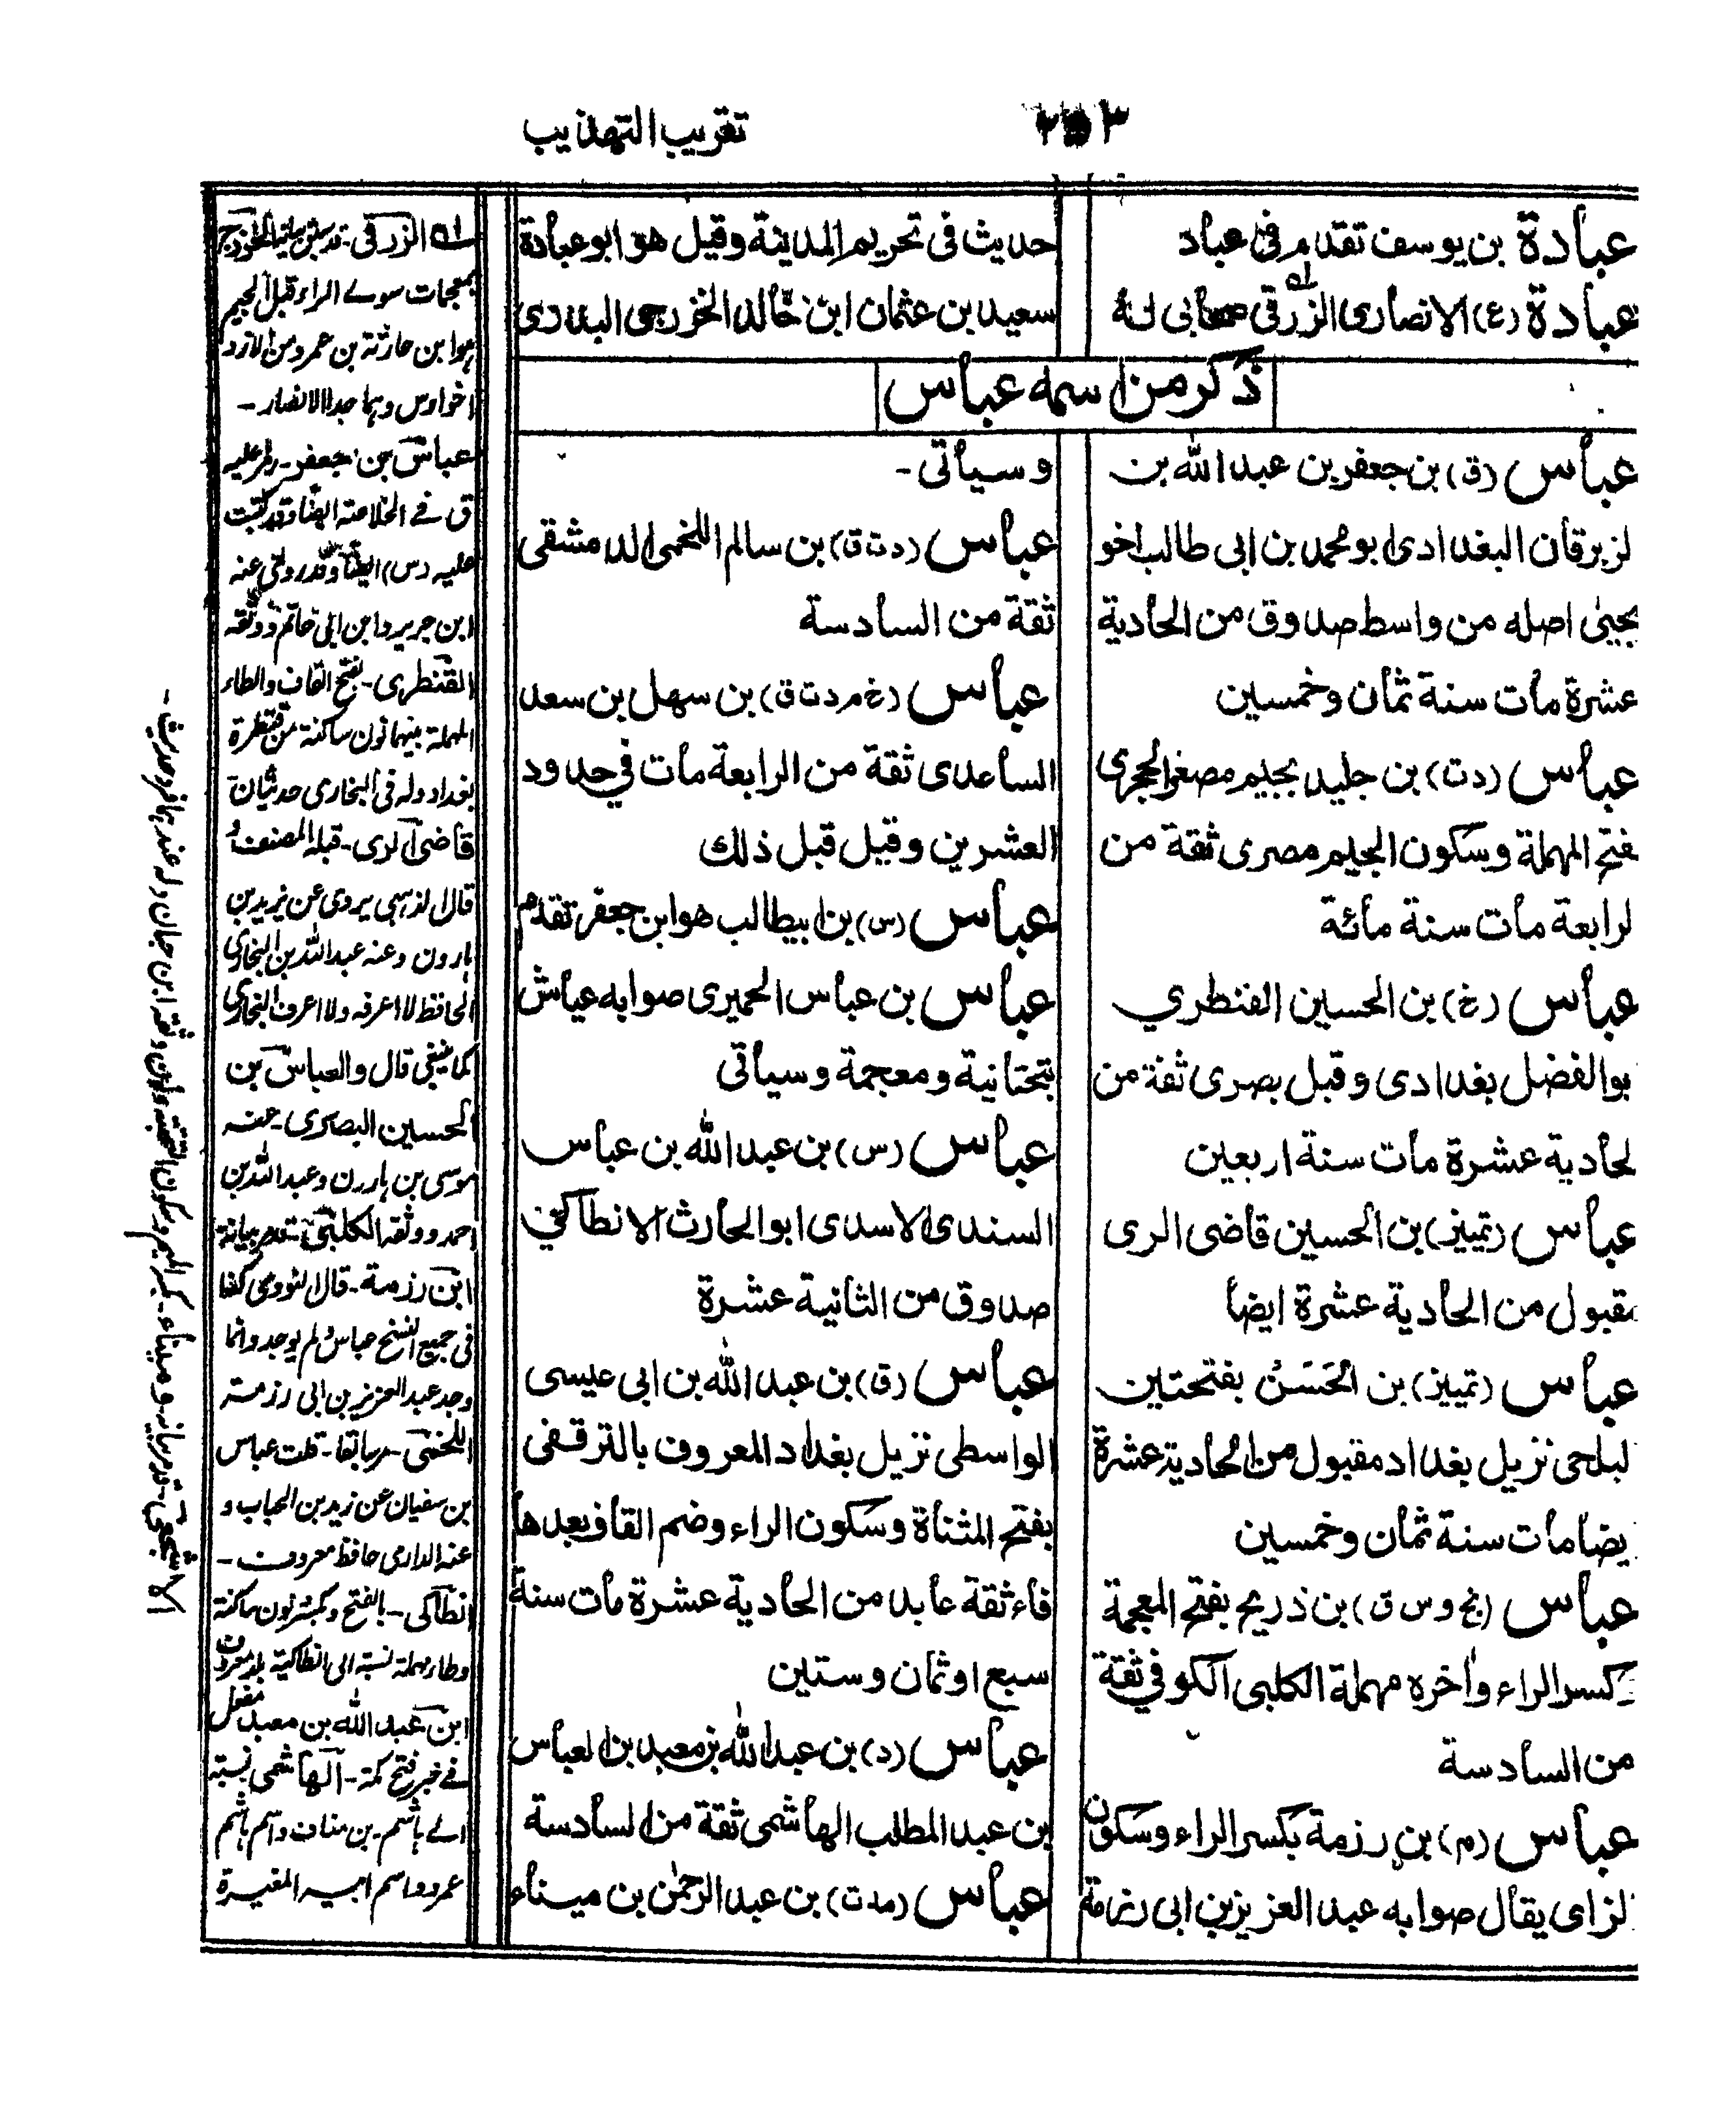 تقريب التهذيب
عبادة بن يوسف تقدم فى عباد
عبادة (ع) الانصارى الزرقى صحابى له
حديث فى تحريم المدينة وقيل هو ابو عبادة
سعيد بن عثمان ابن خالد الخزرجى البدرى
ذكر من اسمه عباس
عباس (ق) بن جعفر بن عبد الله بن
لزبرقان البغدادى ابو محمد بن ابى طالب اخو
يحيى اصله من واسط صدوق من الحادية
عشرة مات سنة ثمان وخمسين
عباس (دت) بن جليد بجيم مصغرا الحجرى
فتح المهملة وسكون الجيم مصرى ثقة من
لرابعة مات سنة مائة
عباس (خ) بن الحسين القنطري
بوالفضل بغدادى وقيل بصرى ثقة من
لحادية عشرة مات سنة اربعين
عباس (تمييز) بن الحسين قاضى الرى
مقبول من الحادية عشرة ايضا
عباس (تمييز) بن الحَسَنْ بفتحتين
لبلخى نزيل بغداد مقبول من الحادية عشرة
يضا مات سنة ثمان وخمسين
عباس (بخ وس ق) بن ذريح بفتح المعجمة
كسر الراء وآخره مهملة الكلبى الكوفي ثقة
من السادسة
عباس (م) بن رزمة بكسر الراء وسكون
لزاى يقال صوابه عبد العزيز بن ابى رزمة
وسيأتى -
عباس (دت ق) بن سالم اللخمى الدمشقى
ثقة من السادسة
عباس (خ م دت ق) بن سهل بن سعد
الساعدى ثقة من الرابعة مات في حدود
العشرين وقيل قبل ذلك
عباس (س) بن ابيطالب هو ابن جعفر تقدم
عباس بن عباس الحميرى صوابه عياش
بتحتانية ومعجمة وسيأتى
عباس (س) بن عبد الله بن عباس
السندى الاسدى ابو الحارث الانطاكي
صدوق من الثانية عشرة
عباس (ق) بن عبد الله بن ابى عيسى
الواسطى نزيل بغداد المعروف بالترقفى
بفتح المثناة وسكون الراء وضم القاف بعدها
فاء ثقة عابد من الحادية عشرة مات سنة
سبع او ثمان وستين
عباس (د) بن عبد الله بن معبد بن العباس
بن عبد المطلب الهاشمى ثقة من السادسة
عباس (مدت) بن عبد الرحمن بن ميناء
بمعجمات سوى الراء قبل الجيم
هوا بن حارثة بن عمرو من الازد
اخو اوس وهما جدا الانصار -
عباس بن جعفر - رمز عليه
ق فے الخلاصة ايضا وقد كتبت
عليه (س) ايضا وقد روى عنه
ابن جرير وابن ابى حاتم ووثقه
القنطرى - بفتح القاف والطاء
المهملة بينهما نون ساكنة من قنطرة
بغداد وله فى البخارى حديثان
قاضى الرى - قبله المصنف
قال الذهبى يروى عن يزيد بن
هارون وعنه عبد الله بن البخارى
الحافظ لا اعرفه ولا اعرف البخارى
كما ينبغى قال والعباس بن
الحسين البصرى - عنه
موسى بن هارون وعبد الله بن
احمد ووثقه الكلبى - قد مر بيانه
ابن رزمة - قال النووى كذا
فى جميع النسخ عباس ولم يوجد وانما
وجد عبد العزيز بن ابى رزمة
اللخمى - مر سابقا - قلت عباس
بن سفيان عن زيد بن الحباب و
عنه الدارى حافظ معروف -
انطاكى - بالفتح وكسر نون ساكنة
وطاء مهملة نسبة الى انطاكية بلد معروف
ابن عبد الله بن معبد مغفل
فے خبر فتح مكة - الهاشمى نسبة
الے هاشم - بن مناف واسم هاشم
عمرو واسم ابيه المغيرة